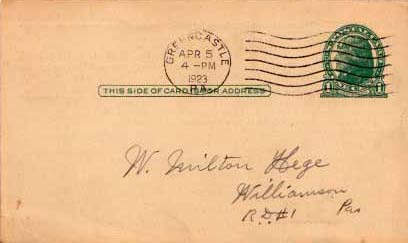 GREENCASTLE
APR 5
4-PM
1923
PA.
THIS SIDE OF CARD IS FOR ADDRESS
W. Milton Hege
Williamson
R.D.#1 Pa